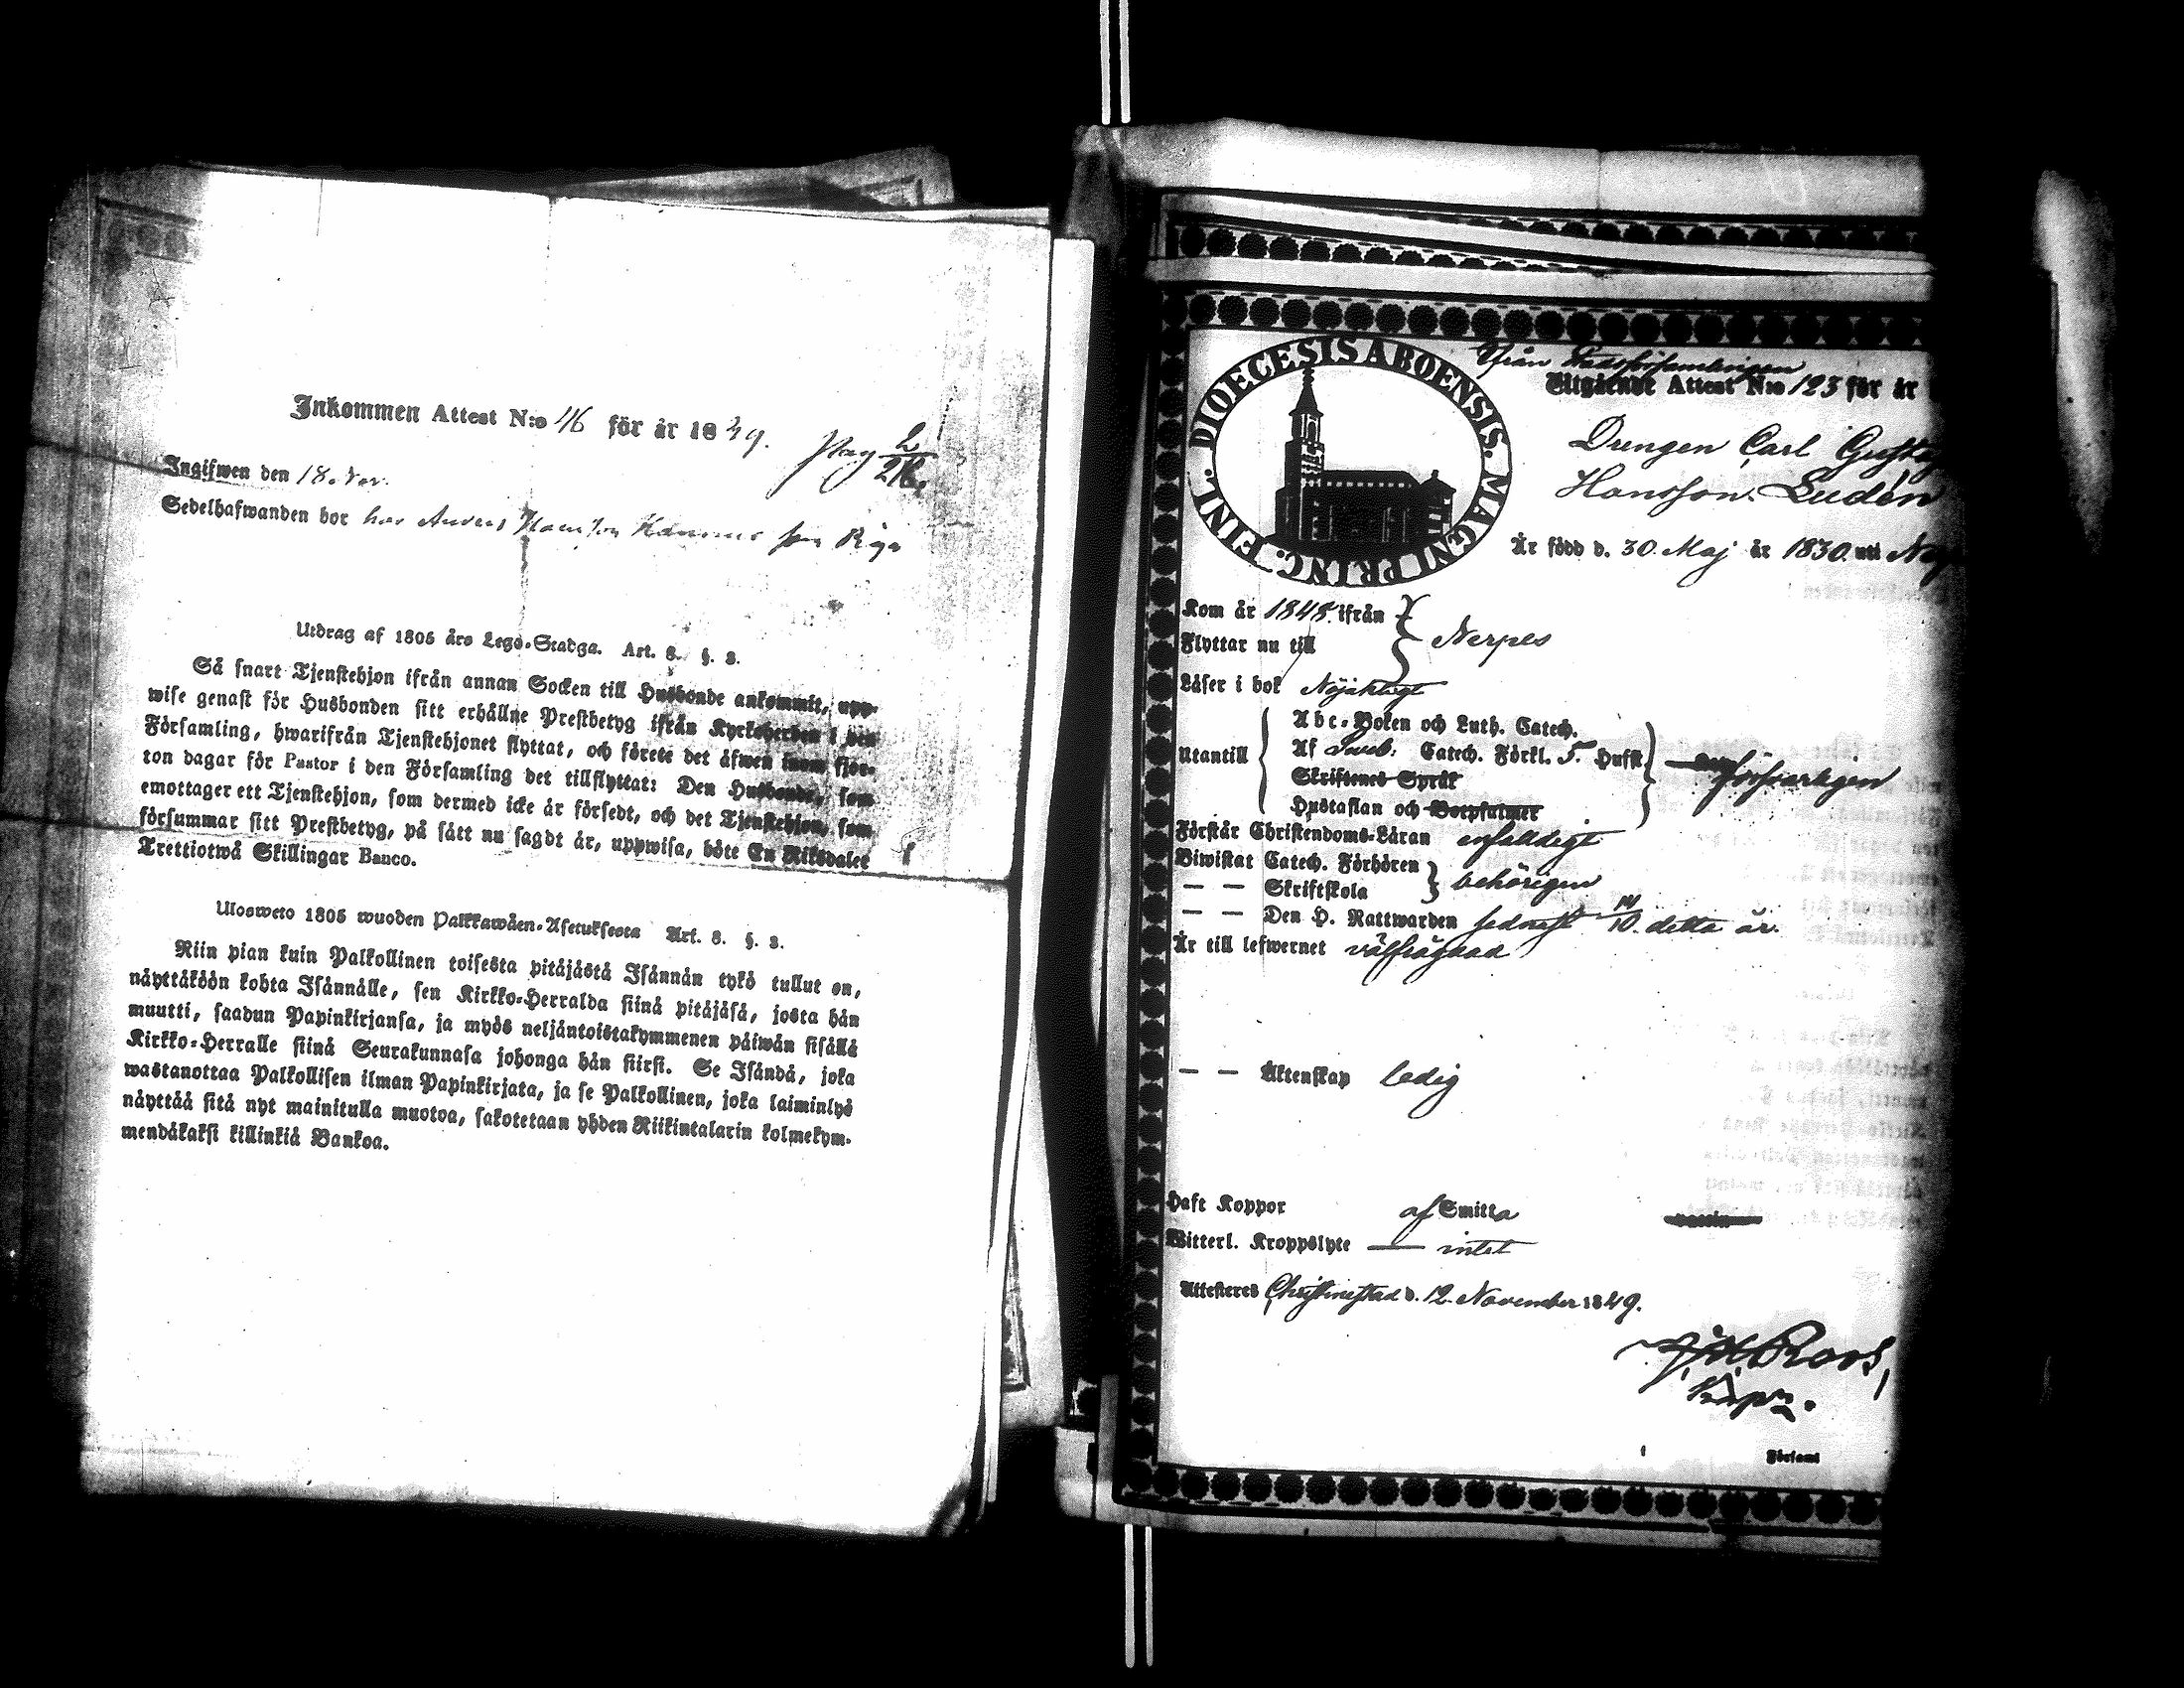 Inkommen Attest N:o 46 för år 1849.
Pag 2/216.
Ingifwen den 18. Nov.
Sedelhafwanden bor hos Anders
Utdrag af 1805 års Lego-Stadga. Art. 8. §. 3.
Så snart Tjenstehjon ifrån annan Socken till Husbonde ankommit, upp-
wise genast för Husbonden sitt erhållne Prestbetyg ifrån Kyrkoherden i den
Församling, hwarifrån Tjenstehjonet flyttat, och förete det äfwen inom fjor-
ton dagar för Pastor i den Församling det tillflyttat: Den Husbonde, som
emottager ett Tjenstehjon, som dermed icke är försedt, och det Tjenstehjon, som
försummar sitt Prestbetyg, på sätt nu sagdt är, uppwisa, böte En Riksdaler
Trettiotwå Skillingar Banco.
Ulosweto 1805 wuoden Palkkawäen-Asetuksesta Art. 8. §. 3.
Niin pian kuin Palkollinen toisesta pitäjästä Isännän tykö tullut on,
näyttäköön kohta Isännälle, sen Kirkko-Herralda siinä pitäjäsä, josta hän
muutti, saadun Papinkirjansa, ja myös neljäntoistakymmenen päiwän sisällä
Kirkko-Herralle siinä Seurakunnasa johonga hän siirsi. Se Isändä, joka
wastanottaa Palkollisen ilman Papinkirjata, ja se Palkollinen, joka laiminlyö
näyttää sitä nyt mainitulla muotoa, sakotetaan yhden Riikintalarin kolmekym-
mendäkaksi killinkiä Bankoa.
DIOECESIS ABOENSIS. MAGNI PRINC. FINL.
Från Stadsförsamlingen
Utgående Attest N:o 123 för år
Drengen Carl Gustaf
Hansson Ludén
Är född d. 30. Maj år 1830. uti
Kom år 1848. ifrån
Flyttar nu till } Nerpes
Läser i bok Nöjaktigt
Utantill
Abc-Boken och Luth. Catech.
Af Sveb: Catech. Förkl. 5. Hufst. försvarligen
Skriftenes Språk
Hustaflan och Botpsalmer
Förstår Christendoms-Läran enfaldigt
Biwistat Catech. Förhören
— — Skriftskola } behörigen
— — Den H. Nattwarden sednast 14/10. detta år.
Är till lefwernet välfrägdad
— — Äktenskap ledig
Haft Koppor af Smitta vaccin
Witterl. Kroppslyte — intet
Attesteres Christinestad d. 12. November 1849.
Roos,
Församl